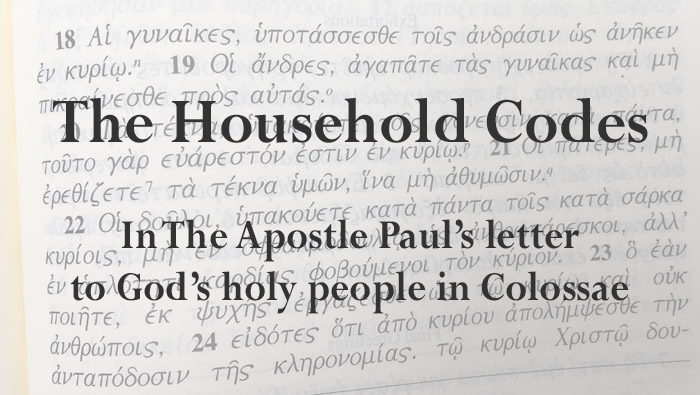 18 Αἱ γυναῖκες, ὑποτάσσεσθε τοῖς ἀνδράσιν ὡς ἀνῆκεν
ἐν κυρίῳ.ⁿ 19 Οἱ ἄνδρες, ἀγαπᾶτε τὰς γυναῖκας καὶ μὴ
πικραίνεσθε πρὸς αὐτάς.ᵒ
The Household Codes
20 Τὰ τέκνα, ὑπακούετε τοῖς γονεῦσιν κατὰ πάντα,
τοῦτο γὰρ εὐάρεστόν ἐστιν ἐν κυρίῳ.ᵖ 21 Οἱ πατέρες, μὴ
ἐρεθίζετε⁷ τὰ τέκνα ὑμῶν, ἵνα μὴ ἀθυμῶσιν.
22 Οἱ δοῦλοι, ὑπακούετε κατὰ πάντα τοῖς κατὰ σάρκα
In The Apostle Paul's letter
κυρίοις, μὴ ἐν ἀλλ᾽
ἐν καρδίας φοβούμενοι τὸν κύριον. 23 ὃ ἐὰν
to God's holy people in Colossae
ποιῆτε, ἐκ ψυχῆς ἐργάζεσθε ὡς τῷ κυρίῳ καὶ οὐκ
ἀνθρώποις, 24 εἰδότες ὅτι ἀπὸ κυρίου ἀπολήμψεσθε τὴν
ἀνταπόδοσιν τῆς κληρονομίας. τῷ κυρίῳ Χριστῷ δου-